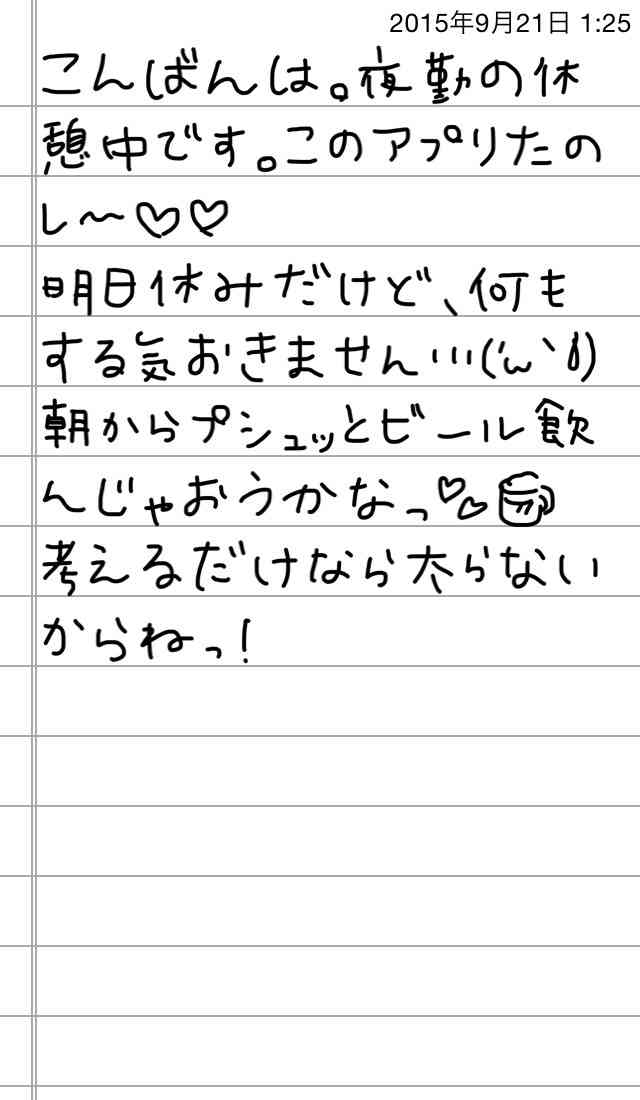 2015年9月21日 1:25
こんばんは。夜勤の休
憩中です。このアプリたの
し〜♡♡
明日休みだけど、何も
する気おきません…(´ω`)
朝からプシュッとビール飲
んじゃおうかなっ♡♡
考えるだけなら太らない
からねっ!